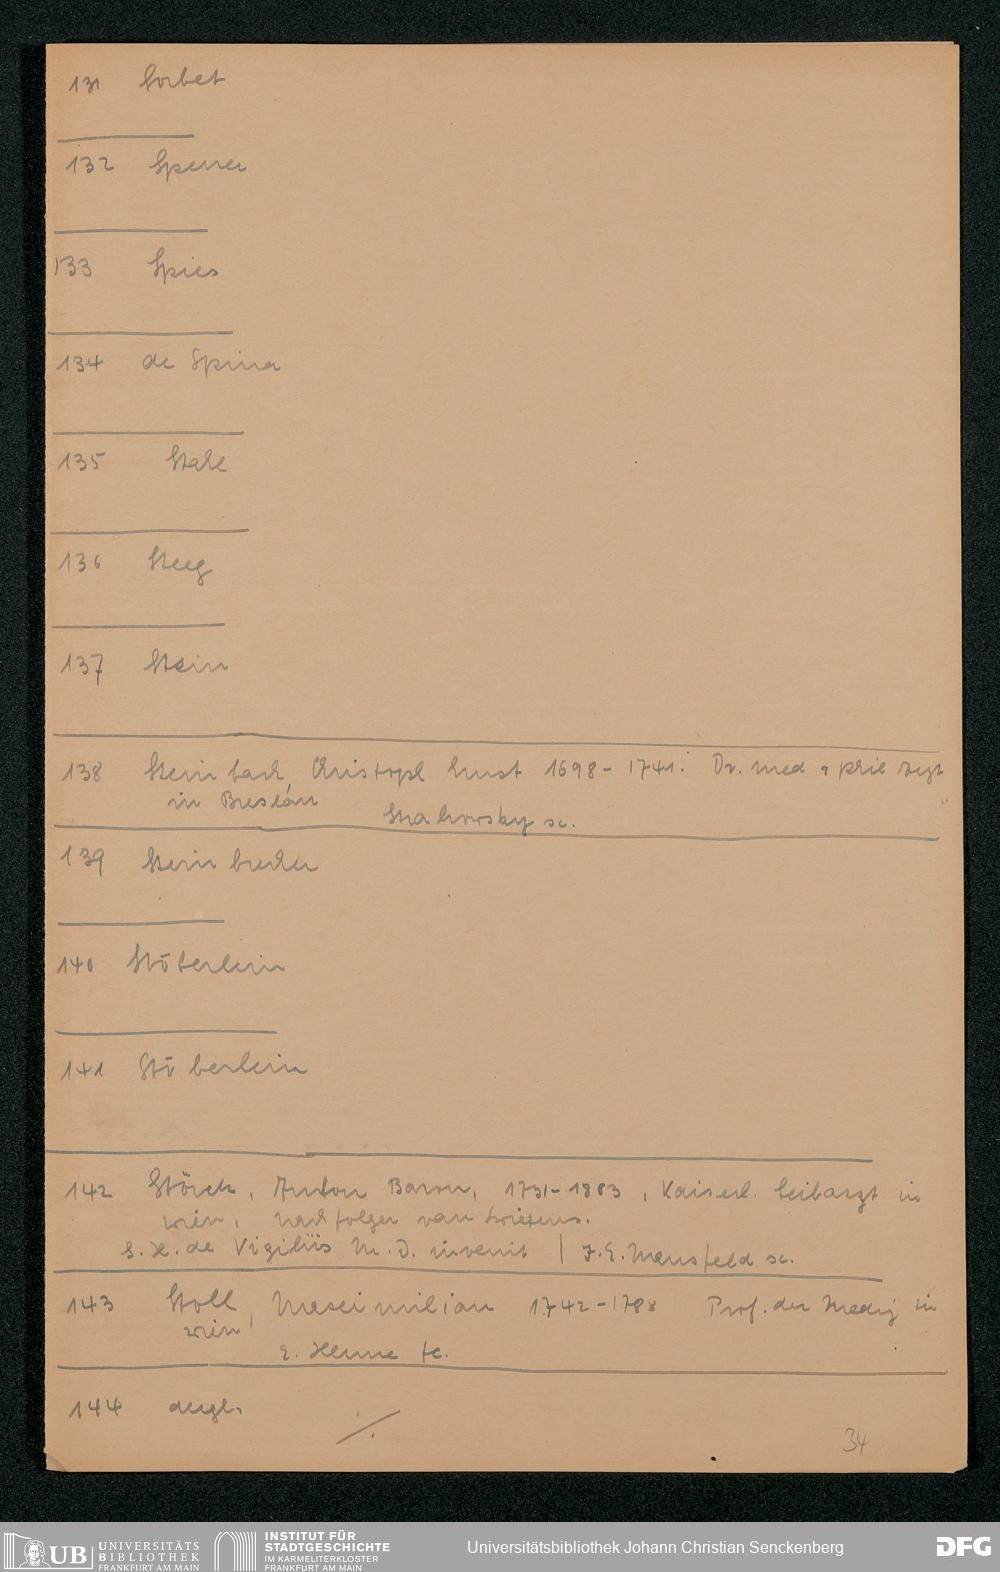 131 Sorbet
132 Spener
133 Spies
134 de Spina
135 Stahl
136 Steeg
137 Stein
138 Steinbach, Christoph Ernst 1698-1741. Dr. med & phil Arzt
in Breslau
Strahowsky sc.
139 Steinbrecher
140 Stöberlein
141 Stöberlein
142 Störck, Anton Baron, 1731-1803, Kaiserl. Leibarzt in
Wien, Nachfolger van Swietens.
de Vigiliis M. D. invenit | J. E. Mansfeld sc.
143 Stoll, Maximilian 1742-1788 Prof. der Mediz in
Wien
E. Henne fc.
144 desgl.
./.
34
UB UNIVERSITÄTS
BIBLIOTHEK
FRANKFURT AM MAIN
INSTITUT FÜR
STADTGESCHICHTE
IM KARMELITERKLOSTER
FRANKFURT AM MAIN
Universitätsbibliothek Johann Christian Senckenberg
DFG